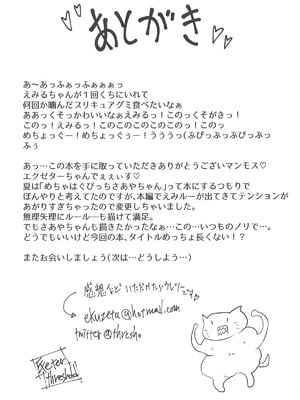 あとがき
あ～あっふぁっふぁぁぁっ
えみるちゃんが１回くちにいれて
何回か噛んだプリキュアグミ食べたいなぁ
ああっくそっかわいいなぁえみるっ！このっくそがきっ！
このっ！えみるっ！このこのこのこのこのっ！このっ
めちょっぐー！めちょっぐぅー！うううっ(ふぴっぷっぷぴっぷっ
ふぅ
あっ…この本を手に取っていただきありがとうございマンモス♡
エクゼターちゃんでぇぇぃす♡
夏は「めちゃはぐぴっちさあやちゃん」って本にするつもりで
ぼんやりと考えてたのですが、本編でえみルーが出てきてテンションが
あがりすぎちゃったので変更しちゃいました。
無理矢理にルールーも描けて満足。
でもさあやちゃんも描きたかったなぁ…この…いつものノリで…。
どうでもいいけど今回の本、タイトルめっちょ長くない！？
またお会いしましょう(次は…どうしよう…)
感想などいただけたらウレシーです♡
ekuzeta@hotmail.com
twitter@thresho
Exeter
threshold